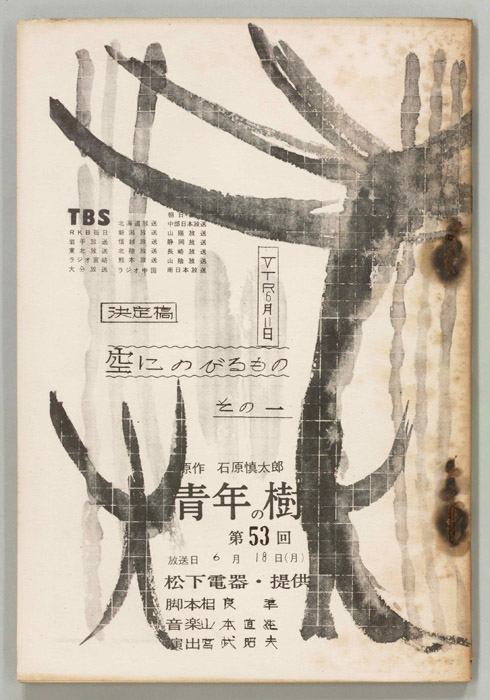 TBS
北海道放送
中部日本放送
RKB毎日
新潟放送
山陽放送
岩手放送
信越放送
静岡放送
東北放送
北陸放送
長崎放送
ラジオ宮崎
熊本放送
山陰放送
大分放送
ラジオ中国
南日本放送
VTR6月11日
決定稿
空にのびるもの
その一
原作 石原慎太郎
青年の樹
第53回
放送日 6月18日(月)
松下電器・提供
脚本 相良 準
音楽 山本直純
演出 宮武昭夫